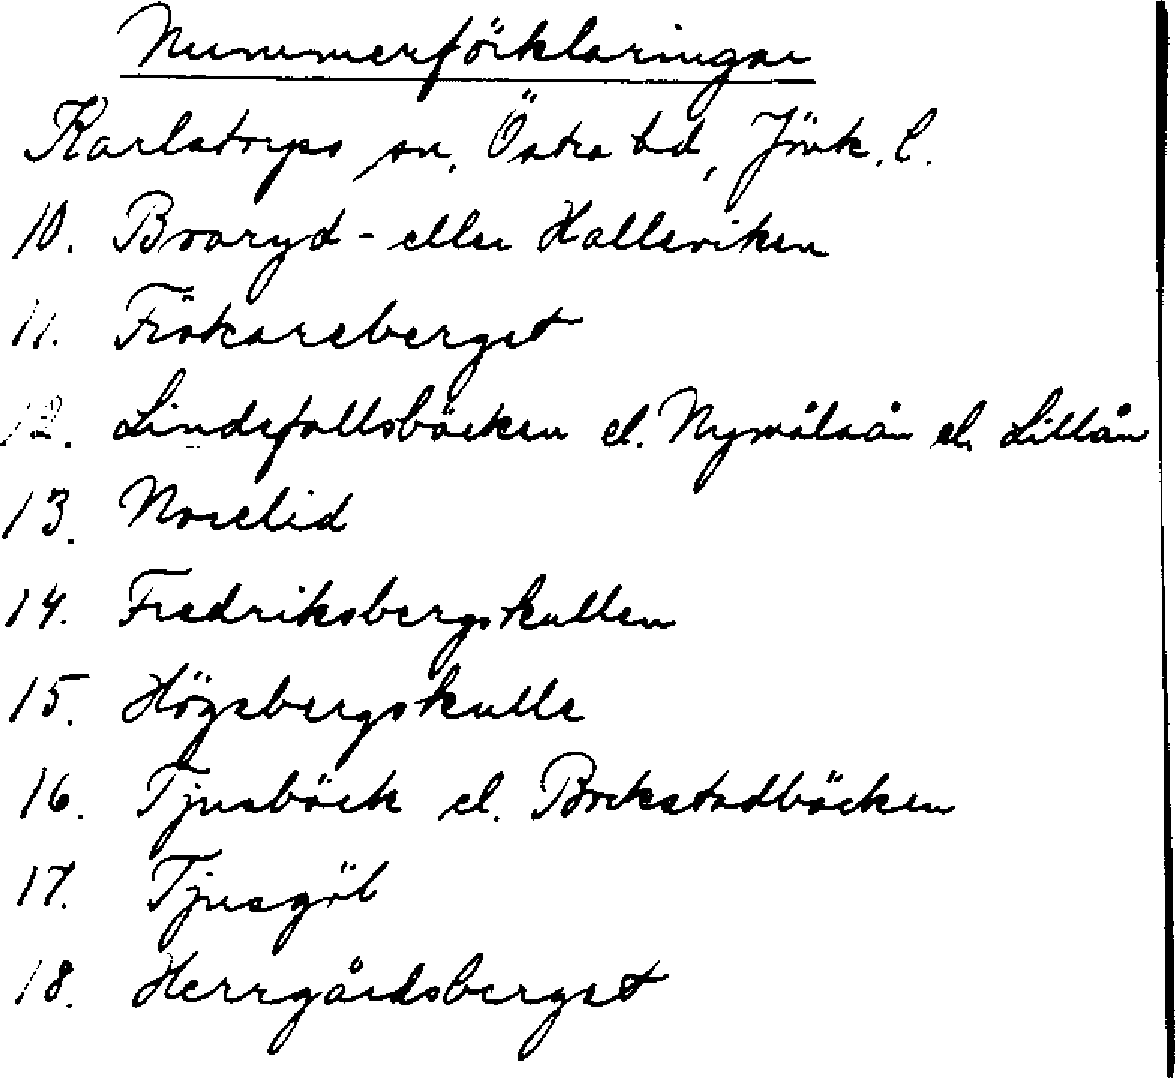 Nummerförklaringar
Karlstorps sn, Östra hd, Jönk. l.
10. Broaryd- eller Halleviken
11. Fiskareberget
12. Lindefallsbäcken el. Nymålaån el. Lillån
13. Norelid
14. Fredriksbergskullen
15. Högabergskulle
16. Tjusbäck el. Bockstadbäcken
17. Tjusgöl
18. Herrgårdsberget